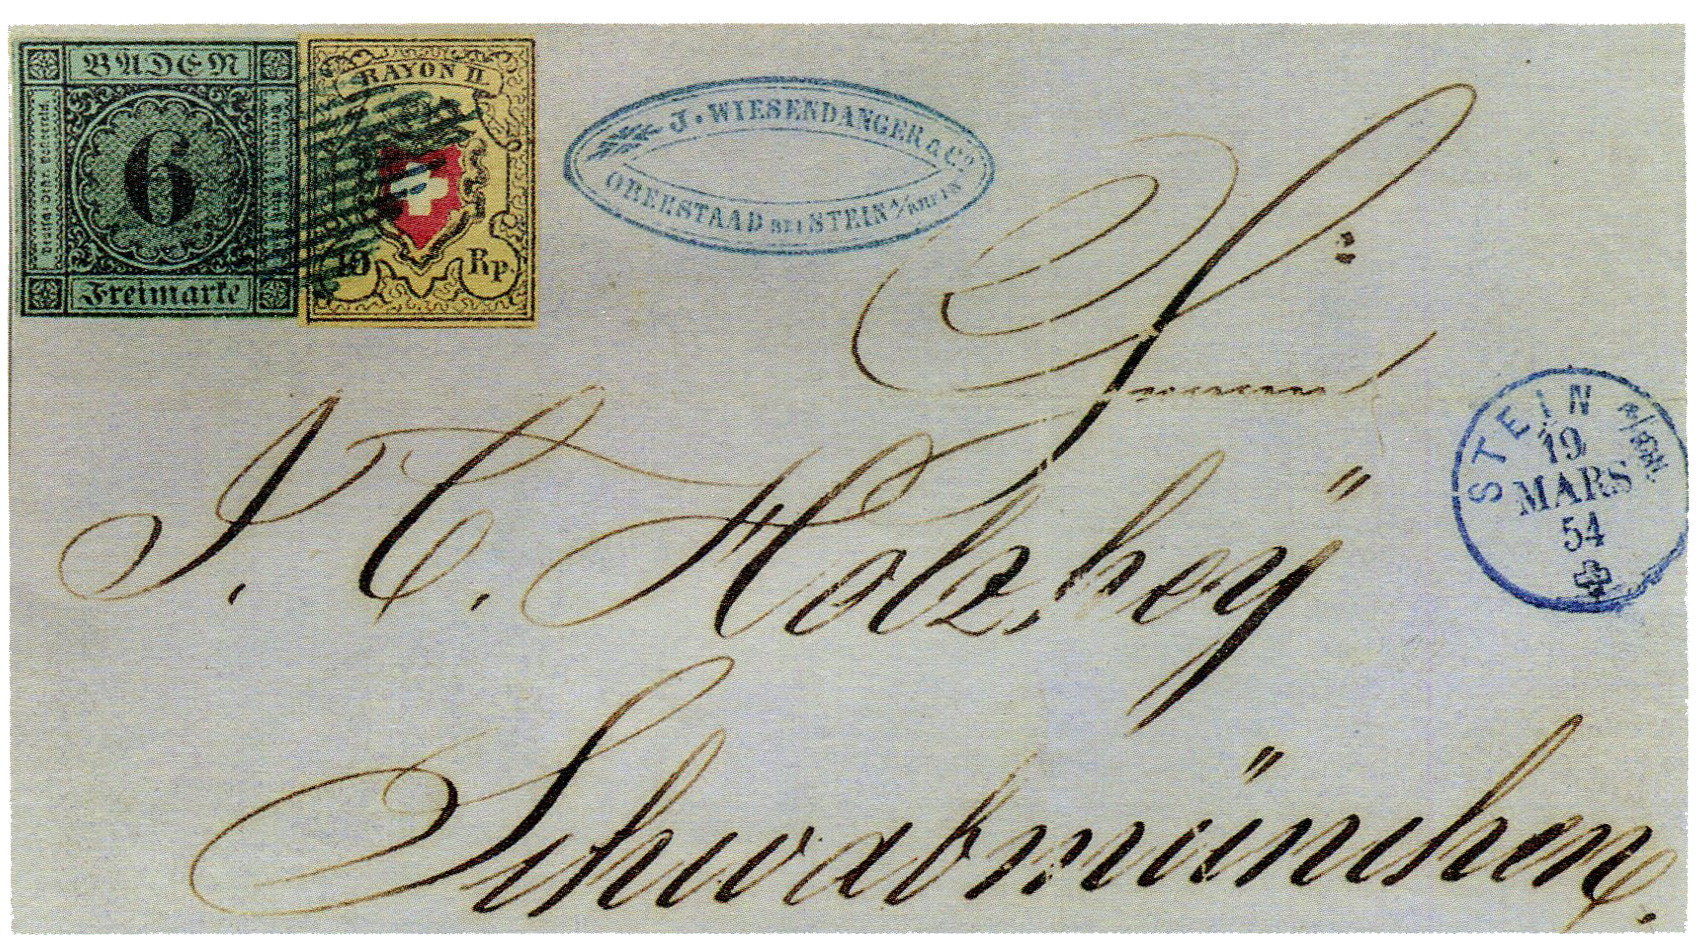 BADEN
6
Freimarke
RAYON II.
10 Rp.
J. WIESENDANGER & Cº
OBERSTAAD BEI STEIN A/RHEIN
STEIN a/RHN
19
MARS
54
J. C. Holzhey
Schwabmünchen.